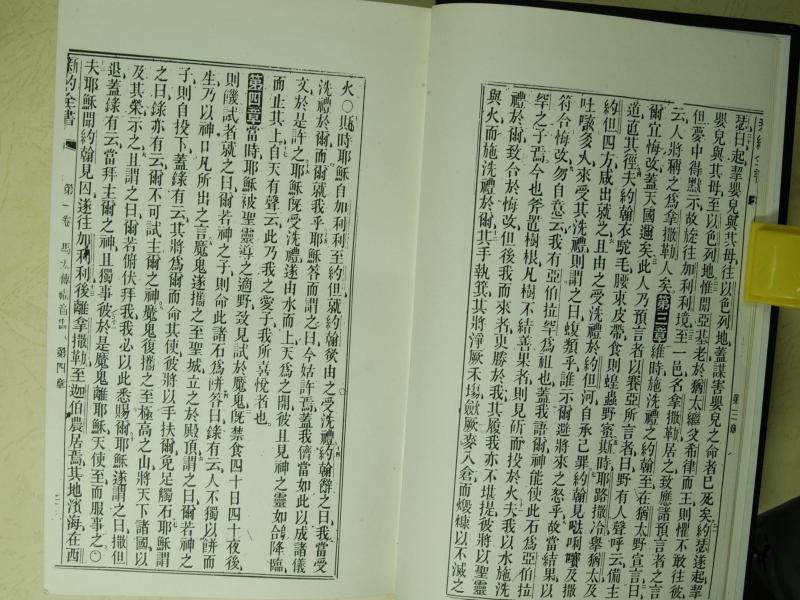 瑟曰起挈嬰兒與其母往以色列地蓋謀害嬰兒之命者已死矣約瑟遂起挈
嬰兒與其母至以色列地惟聞亞基老於猶太繼父希律而王則懼不敢往彼
但夢中得默示故旋往加利利境至一邑名拿撒勒居之致應諸預言者之言
云人將稱之為拿撒勒人矣第三章維時施洗禮之約翰至在猶太野宣言曰
爾宜悔改蓋天國邇矣此人乃預言者以賽亞所言者曰野有人聲呼云備主
道直其徑夫約翰衣駝毛腰束皮帶食則蝗蟲野蜜斯時耶路撒冷舉猶太及
約但四方咸出就之且由之受洗禮於約但河自承己罪約翰見𠵽唎㘔及撒
吐㗖多人來受其洗禮則謂之曰蝮類乎誰示爾避將來之怒乎故當結果以
符合悔改勿自意云我有亞伯拉罕為祖也蓋我語爾神能使此石為亞伯拉
罕之子焉今也斧置樹根凡樹不結善果者則見斫而投於火夫我以水施洗
禮於爾致合於悔改但後我而來者更勝於我其履我亦不堪提彼將以聖靈
與火而施洗禮於爾其手執箕其將淨厥禾場斂厥麥入倉而燬糠以不滅之
第三章
火○斯時耶穌自加利利至約但就約翰欲由之受洗禮約翰辭之曰我當受
洗禮於爾而爾就我乎耶穌答而謂之曰今姑許焉蓋我儕當如此以成諸儀
文於是許之耶穌既受洗禮遂由水而上天為之開彼且見神之靈如鴿降臨
而止其上自天有聲云此乃我之愛子我所喜悅者也
第四章當時耶穌被聖靈導之適野致見試於魔鬼既禁食四十日四十夜後
則饑試者就之曰爾若神之子則命此諸石為餅答曰錄有云人不獨以餅而
生乃以神口凡所出之言魔鬼遂攜之至聖城立之於殿頂謂之曰爾若神之
子則自投下蓋錄有云其將為爾而命其使彼將以手扶爾免足觸石耶穌謂
之曰錄亦有云爾不可試主爾之神魔鬼復攜之至極高之山將天下諸國以
及其榮示之且謂之曰爾若俯伏拜我我必以此悉賜爾耶穌遂謂之曰撒但
退蓋錄有云當拜主爾之神且獨事彼於是魔鬼離耶穌天使至而服事之○
夫耶穌聞約翰見囚遂往加利利後離拿撒勒至迦伯農居焉其地濱海在西
新約全書 第一卷 馬太傳福音書 第四章